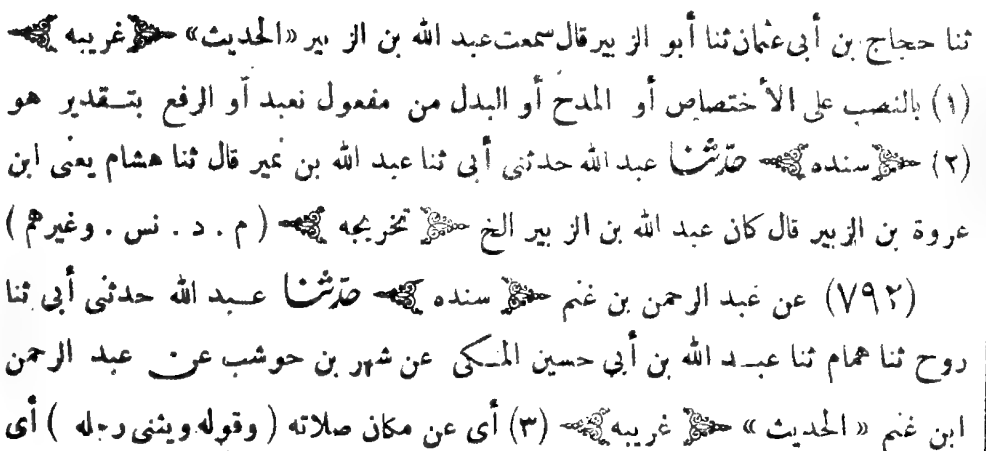 ثنا حجاج بن أبى عثمان ثنا أبو الزبير قال سمعت عبد الله بن الزبير «الحديث» غريبه
(١) بالنصب على الأختصاص أو المدح أو البدل من مفعول نعبد أو الرفع بتقدير هو
(٢) سنده حدّثنا عبد الله حدثنى أبى ثنا عبد الله بن نمير قال ثنا هشام يعنى ابن
عروة بن الزبير قال كان عبد الله بن الزبير الخ تخريجه ( م . د . نس . وغيرهم )
(٧٩٢) عن عبد الرحمن بن غنم سنده حدّثنا عبد الله حدثنى أبى ثنا
روح ثنا همام ثنا عبد الله بن أبى حسين المكى عن شهر بن حوشب عن عبد الرحمن
ابن غنم « الحديث » غريبه (٣) أى عن مكان صلاته ( وقوله ويثنى رجله ) أى